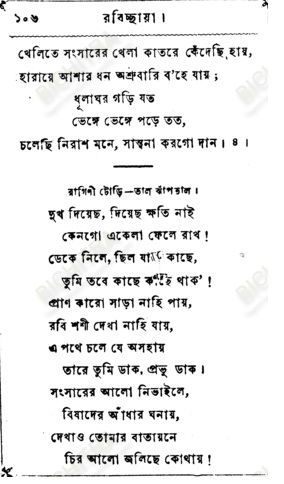 ১০৬ রবিচ্ছায়া।
খেলিতে সংসারের খেলা কাতরে কেঁদেছি হায়,
হারায়ে আশার ধন অশ্রুবারি ব'হে যায়;
ধূলাঘর গড়ি যত
ভেঙ্গে ভেঙ্গে পড়ে তত,
চলেছি নিরাশ মনে, সান্ত্বনা করগো দান। ৪।
রাগিণী টোড়ি—তাল ঝাঁপতাল।
দুখ দিয়েছ, দিয়েছ ক্ষতি নাই
কেনগো একেলা ফেলে রাখ!
ডেকে নিলে, ছিল যারা কাছে,
তুমি তবে কাছে কাছে থাক'!
প্রাণ কারো সাড়া নাহি পায়,
রবি শশী দেখা নাহি যায়,
এ পথে চলে যে অসহায়
তারে তুমি ডাক, প্রভু ডাক।
সংসারের আলো নিভাইলে,
বিষাদের আঁধার ঘনায়,
দেখাও তোমার বাতায়নে
চির আলো জলিছে কোথায়!